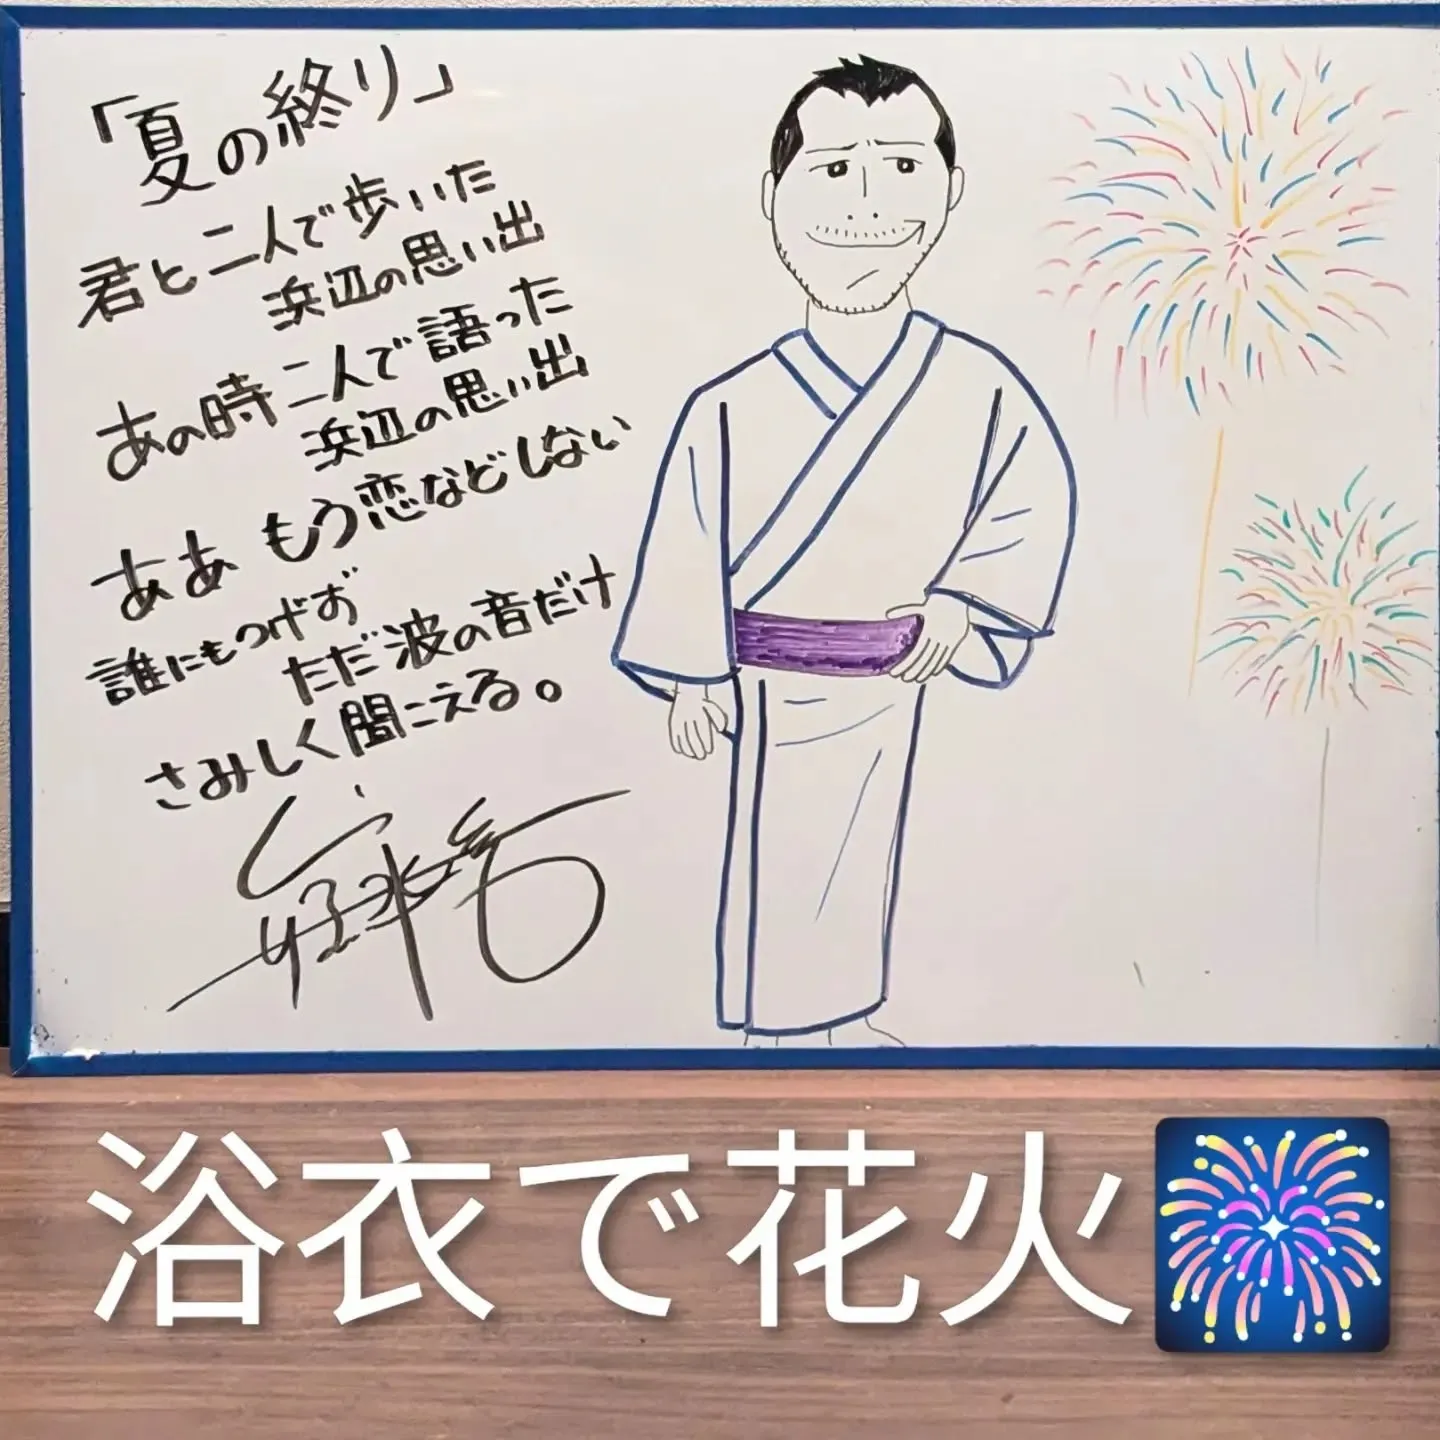 「夏の終り」
君と二人で歩いた
浜辺の思い出
あの時二人で語った
浜辺の思い出
ああ もう恋などしない
誰にもつげず
ただ波の音だけ
さみしく聞こえる。
浴衣で花火